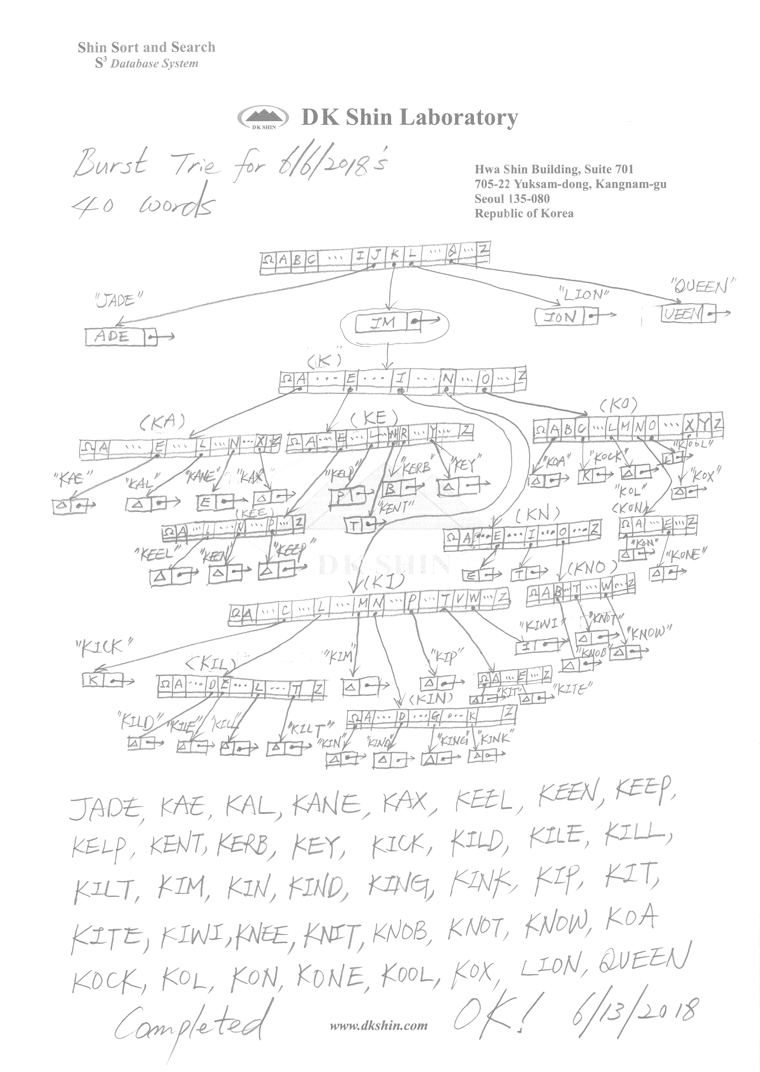 Shin Sort and Search
S³ Database System
DK SHIN
DK Shin Laboratory
Burst Trie for 6/6/2018's
40 words
Hwa Shin Building, Suite 701
705-22 Yuksam-dong, Kangnam-gu
Seoul 135-080
Republic of Korea
Ω A B C ... I J K L ... Q ... Z
"JADE" "LION" "QUEEN"
ADE IM ION UEEN
(K)
Ω A ... E ... I ... N ... O ... Z
(KA) (KE) (KO)
Ω A ... E ... L ... N ... X Z
Ω A ... E ... L ... N R ... Y ... Z
Ω A B C ... L M N O ... X Y Z
"KAE" "KAL" "KANE" "KAX" "KELP" "KERB" "KEY" "KOA" "KOCK" "KOOL"
Δ Δ E Δ P B Δ Δ K Δ L Δ
"KENT" "KOL" "KOX"
T
(KEE) (KN) (KON)
Ω A ... L ... N ... P ... Z
Ω A ... E ... I ... O ... Z
Ω A ... E ... Z
"KEEL" "KEEN" "KEEP" "KON" "KONE"
Δ Δ Δ E T Δ Δ
DK SHIN
(KI) (KNO)
Ω A ... C ... L ... M N ... P ... T V W ... Z
Ω A B ... T ... W ... Z
"KICK" "KIM" "KIP" "KIWI" "KNOT" "KNOW" "KNOB"
K Δ Δ I Δ Δ Δ
(KIL) (KIN)
Ω A ... D E ... L ... T Z
Ω A ... E ... Z
"KIT" "KITE"
Δ Δ
Ω A ... D ... G ... K Z
"KILD" "KILE" "KILL" "KILT" "KIN" "KIND" "KING" "KINK"
Δ Δ Δ Δ Δ Δ Δ Δ
JADE, KAE, KAL, KANE, KAX, KEEL, KEEN, KEEP,
KELP, KENT, KERB, KEY, KICK, KILD, KILE, KILL,
KILT, KIM, KIN, KIND, KING, KINK, KIP, KIT,
KITE, KIWI, KNEE, KNIT, KNOB, KNOT, KNOW, KOA
KOCK, KOL, KON, KONE, KOOL, KOX, LION, QUEEN
Completed OK! 6/13/2018
www.dkshin.com